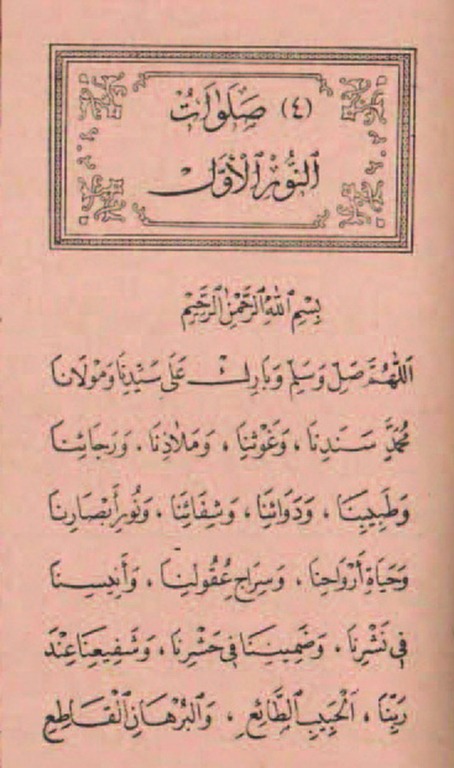 (٤) صَلَوَاتُ
ٱلنُّورِ ٱلْأَوَّلِ
بِسْمِ ٱللَّهِ ٱلرَّحْمَٰنِ ٱلرَّحِيْمِ
اَللّٰهُمَّ صَلِّ وَسَلِّمْ وَبَارِكْ عَلَى سَيِّدِنَا وَمَوْلَانَا
مُحَمَّدٍ سَنَدِنَا ، وَغَوْثِنَا ، وَمَلَاذِنَا ، وَرَجَائِنَا
وَطَبِيبِنَا ، وَدَوَائِنَا ، وَشِفَائِنَا ، وَنُورِ أَبْصَارِنَا
وَحَيَاةِ أَرْوَاحِنَا ، وَسِرَاجِ عُقُولِنَا ، وَأَنِيسِنَا
فِي نَشْرِنَا ، وَضَمِينِنَا فِي حَشْرِنَا ، وَشَفِيعِنَا عِنْدَ
رَبِّنَا ، اَلْحَبِيبِ ٱلطَّائِعِ ، وَٱلْبُرْهَانِ ٱلْقَاطِعِ